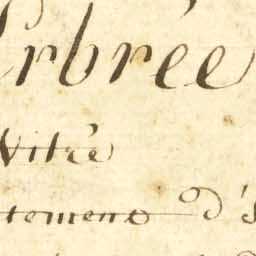 Erbrée
Vitré
tement d'I